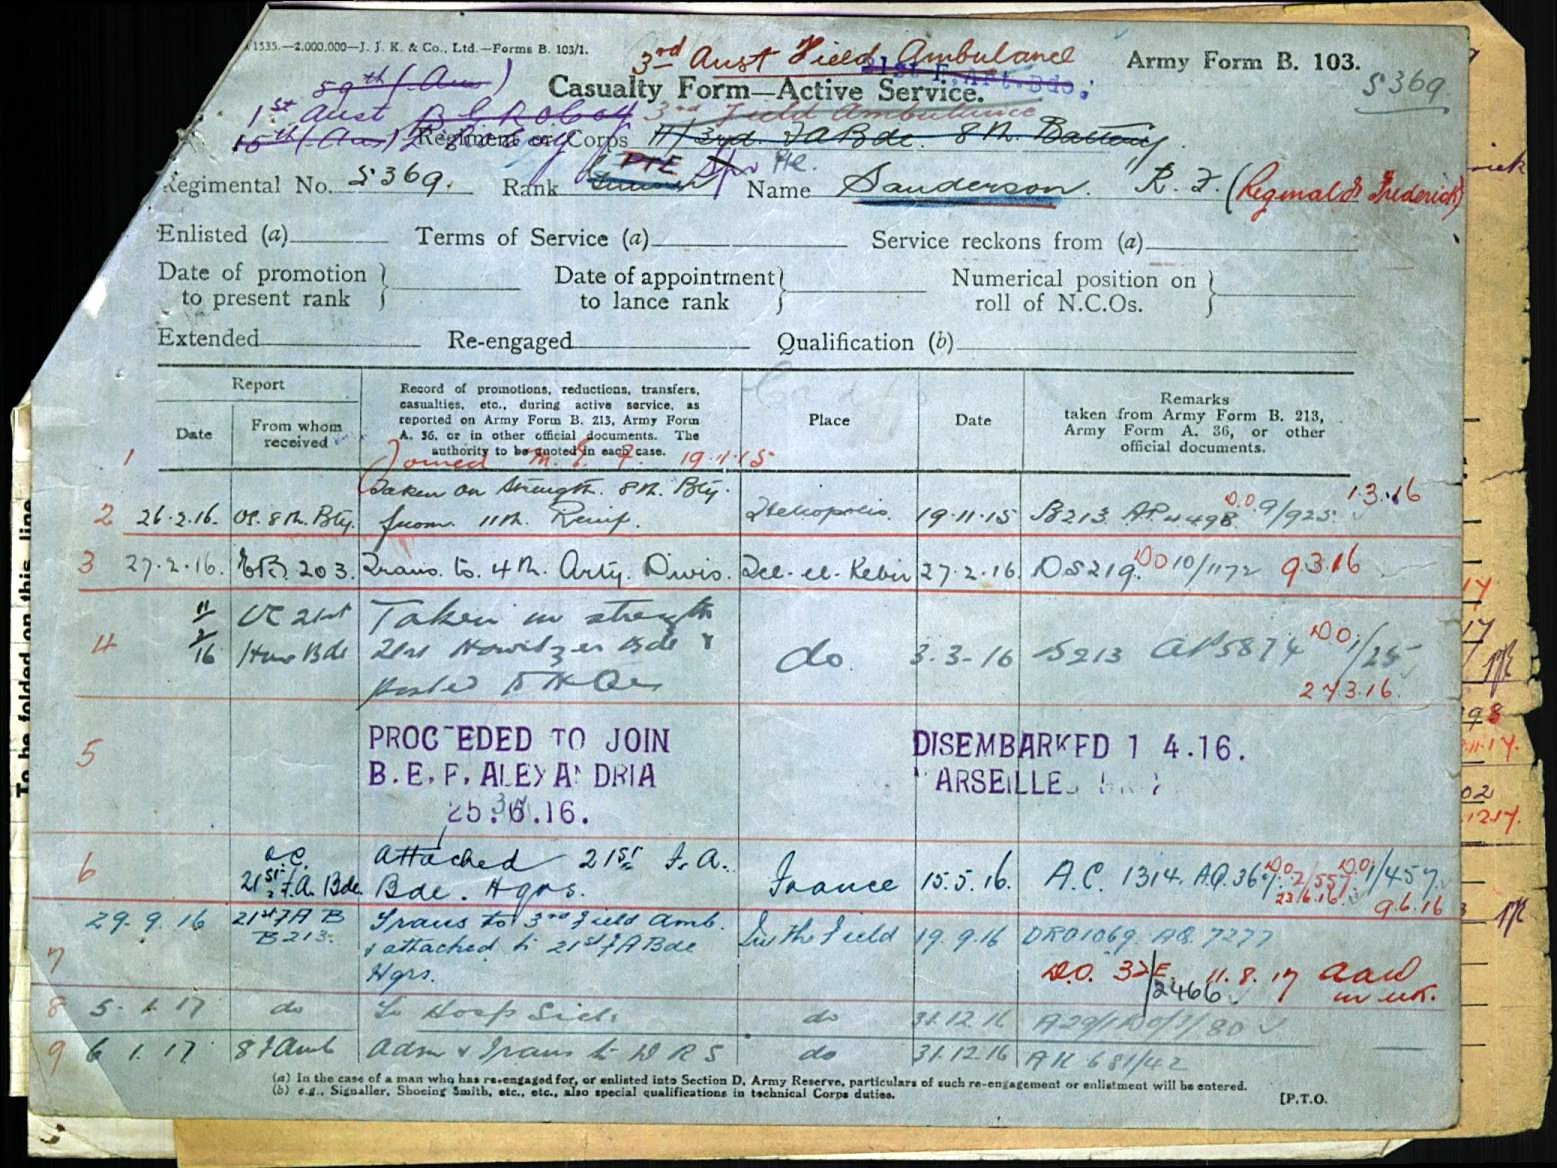 1535.—2,000,000—J. J. K. & Co., Ltd.—Forms B. 103/1.
3rd Aust Field Ambulance
Army Form B. 103.
5369
59th (Aus)
Casualty Form—Active Service.
1st Aust
3rd Field Ambulance
15th (Aus)
Regiment or Corps 11/3rd. FA Bde. 8th. Battery
Regimental No. 5369. Rank PTE Spr Pte. Name Sanderson. R. F. (Reginald Frederick)
Enlisted (a) Terms of Service (a) Service reckons from (a)
Date of promotion to present rank } Date of appointment to lance rank } Numerical position on roll of N.C.Os. }
Extended Re-engaged Qualification (b)
Report
Date
From whom received
Record of promotions, reductions, transfers,
casualties, etc., during active service, as
reported on Army Form B. 213, Army Form
A. 36, or in other official documents. The
authority to be quoted in each case.
Place
Date
Remarks
taken from Army Form B. 213,
Army Form A. 36, or other
official documents.
1 Joined M. E. F. 19.11.15
Taken on Strength. 8th. Bty. 1.3.16
2 26.2.16. OC. 8th. Bty. from 11th. Reinf. Heliopolis 19.11.15 B213. AP4498 DO 9/925
3 27.2.16. 203. Trans. to. 4th. Arty. Divis. Tel-el-Kebir 27.2.16 DS219 DO 10/1172 9.3.16
11/2/16 OC 21st Taken on strength
4 How Bde 21st Howitzer Bde & do. 3-3-16 B213 AP5874 DO 1/25
posted to HQrs 27.3.16.
5 PROCEEDED TO JOIN DISEMBARKED 1 4.16.
B.E.F. ALEXANDRIA MARSEILLE
25.3.16.
O.C. Attached 21st F.A.
6 21st F.A. Bde Bde. Hqrs. France 15.5.16. A.C. 1314. DO 1/457
23/6/16 9.6.16
29.9.16 21st FAB Trans to 3rd Field Amb. In the Field 19.9.16 DRO1069. AQ. 7277
B213. & attached to 21st FA Bde
7 Hqrs. D.O. 32/2466 11.8.17
8 5.1.17 do To Hosp Sick do 31.12.16
9 6.1.17 8 F Amb Adm & Trans to DRS do 31.12.16
(a) In the case of a man who has re-engaged for, or enlisted into Section D, Army Reserve, particulars of such re-engagement or enlistment will be entered.
(b) e.g., Signaller, Shoeing Smith, etc., etc., also special qualifications in technical Corps duties.
[P.T.O.
To be folded on this line